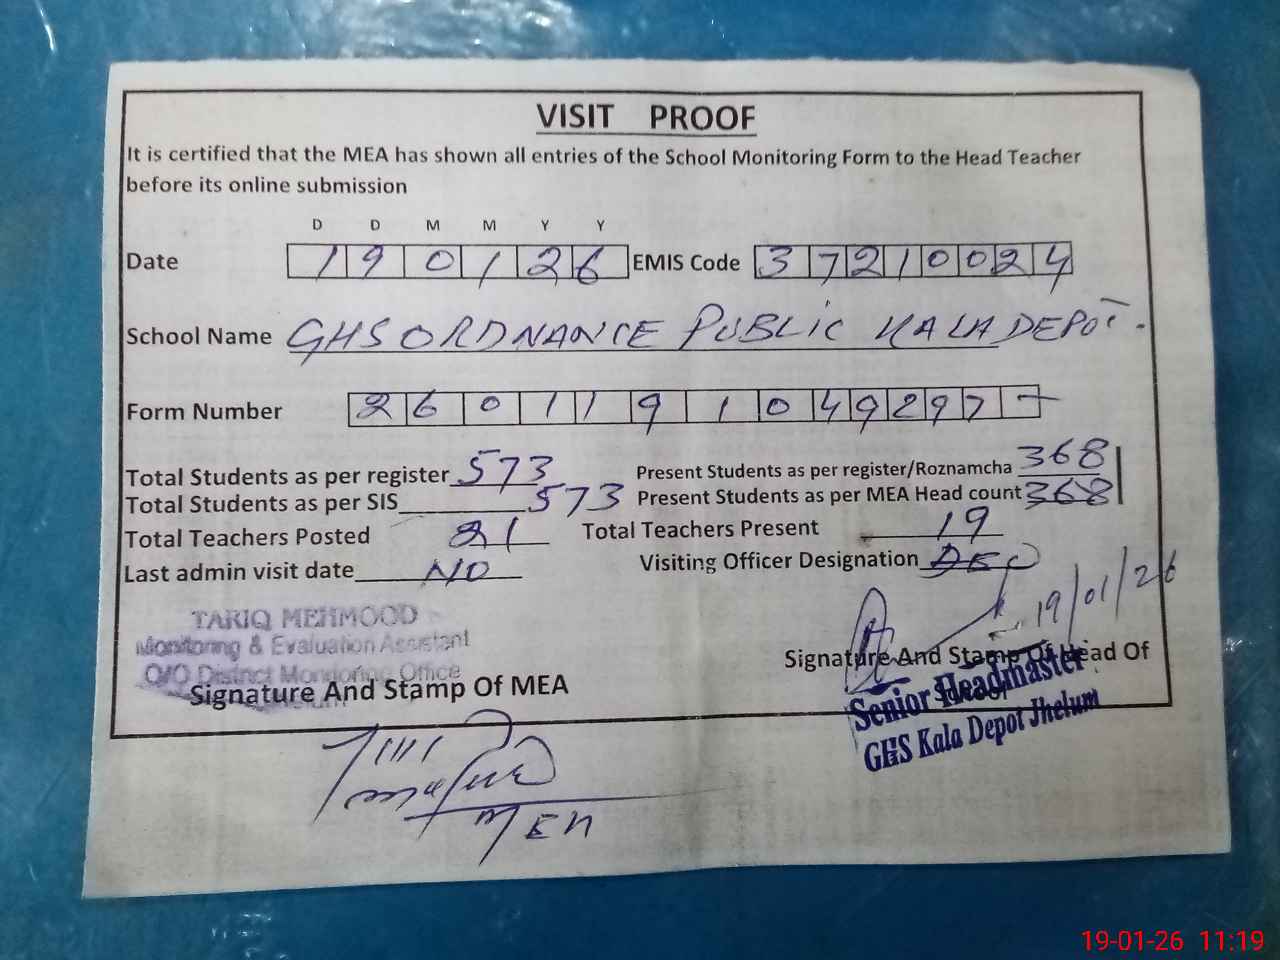 VISIT PROOF
It is certified that the MEA has shown all entries of the School Monitoring Form to the Head Teacher
before its online submission
D D M M Y Y
Date 1 9 0 1 2 6 EMIS Code 3 7 2 1 0 0 2 4
School Name GHS ORDNANCE PUBLIC KALA DEPOT.
Form Number 2 6 0 1 1 9 1 0 4 9 2 9 7 -
Total Students as per register 573 Present Students as per register/Roznamcha 368
Total Students as per SIS 573 Present Students as per MEA Head count 368
Total Teachers Posted 21 Total Teachers Present 19
Last admin visit date NO Visiting Officer Designation
19/01/26
TARIQ MEHMOOD
Monitoring & Evaluation Assistant
O/O District Monitoring Office
Jhelum
Signature And Stamp Of MEA
Signature And Stamp Of Head Of
Senior Headmaster
GHS Kala Depot Jhelum
MEA
19-01-26 11:19